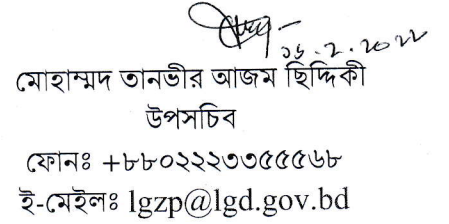 ১৬.২.২০২২
মোহাম্মদ তানভীর আজম ছিদ্দিকী
উপসচিব
ফোনঃ +৮৮০২২২৩৩৫৫৫৬৮
ই-মেইলঃ lgzp@lgd.gov.bd